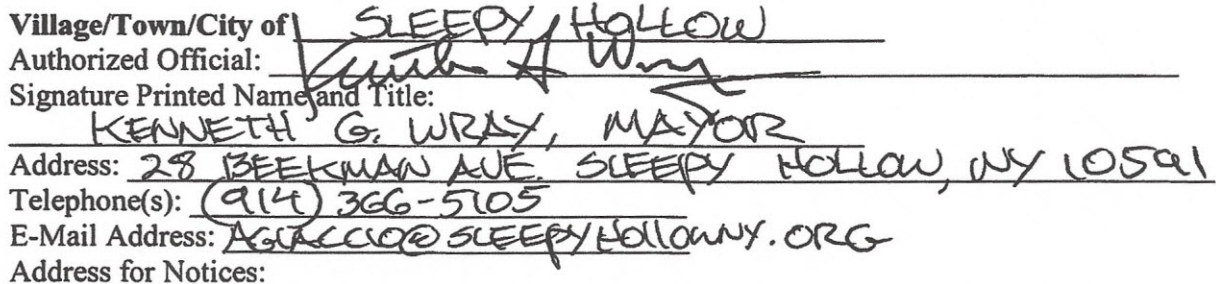 Village/Town/City of SLEEPY HOLLOW
Authorized Official:
Signature Printed Name and Title:
KENNETH G. WRAY, MAYOR
Address: 28 BEEKMAN AVE. SLEEPY HOLLOW, NY 10591
Telephone(s): (914) 366-5105
E-Mail Address: AGIACCIO@SLEEPYHOLLOWNY.ORG
Address for Notices: